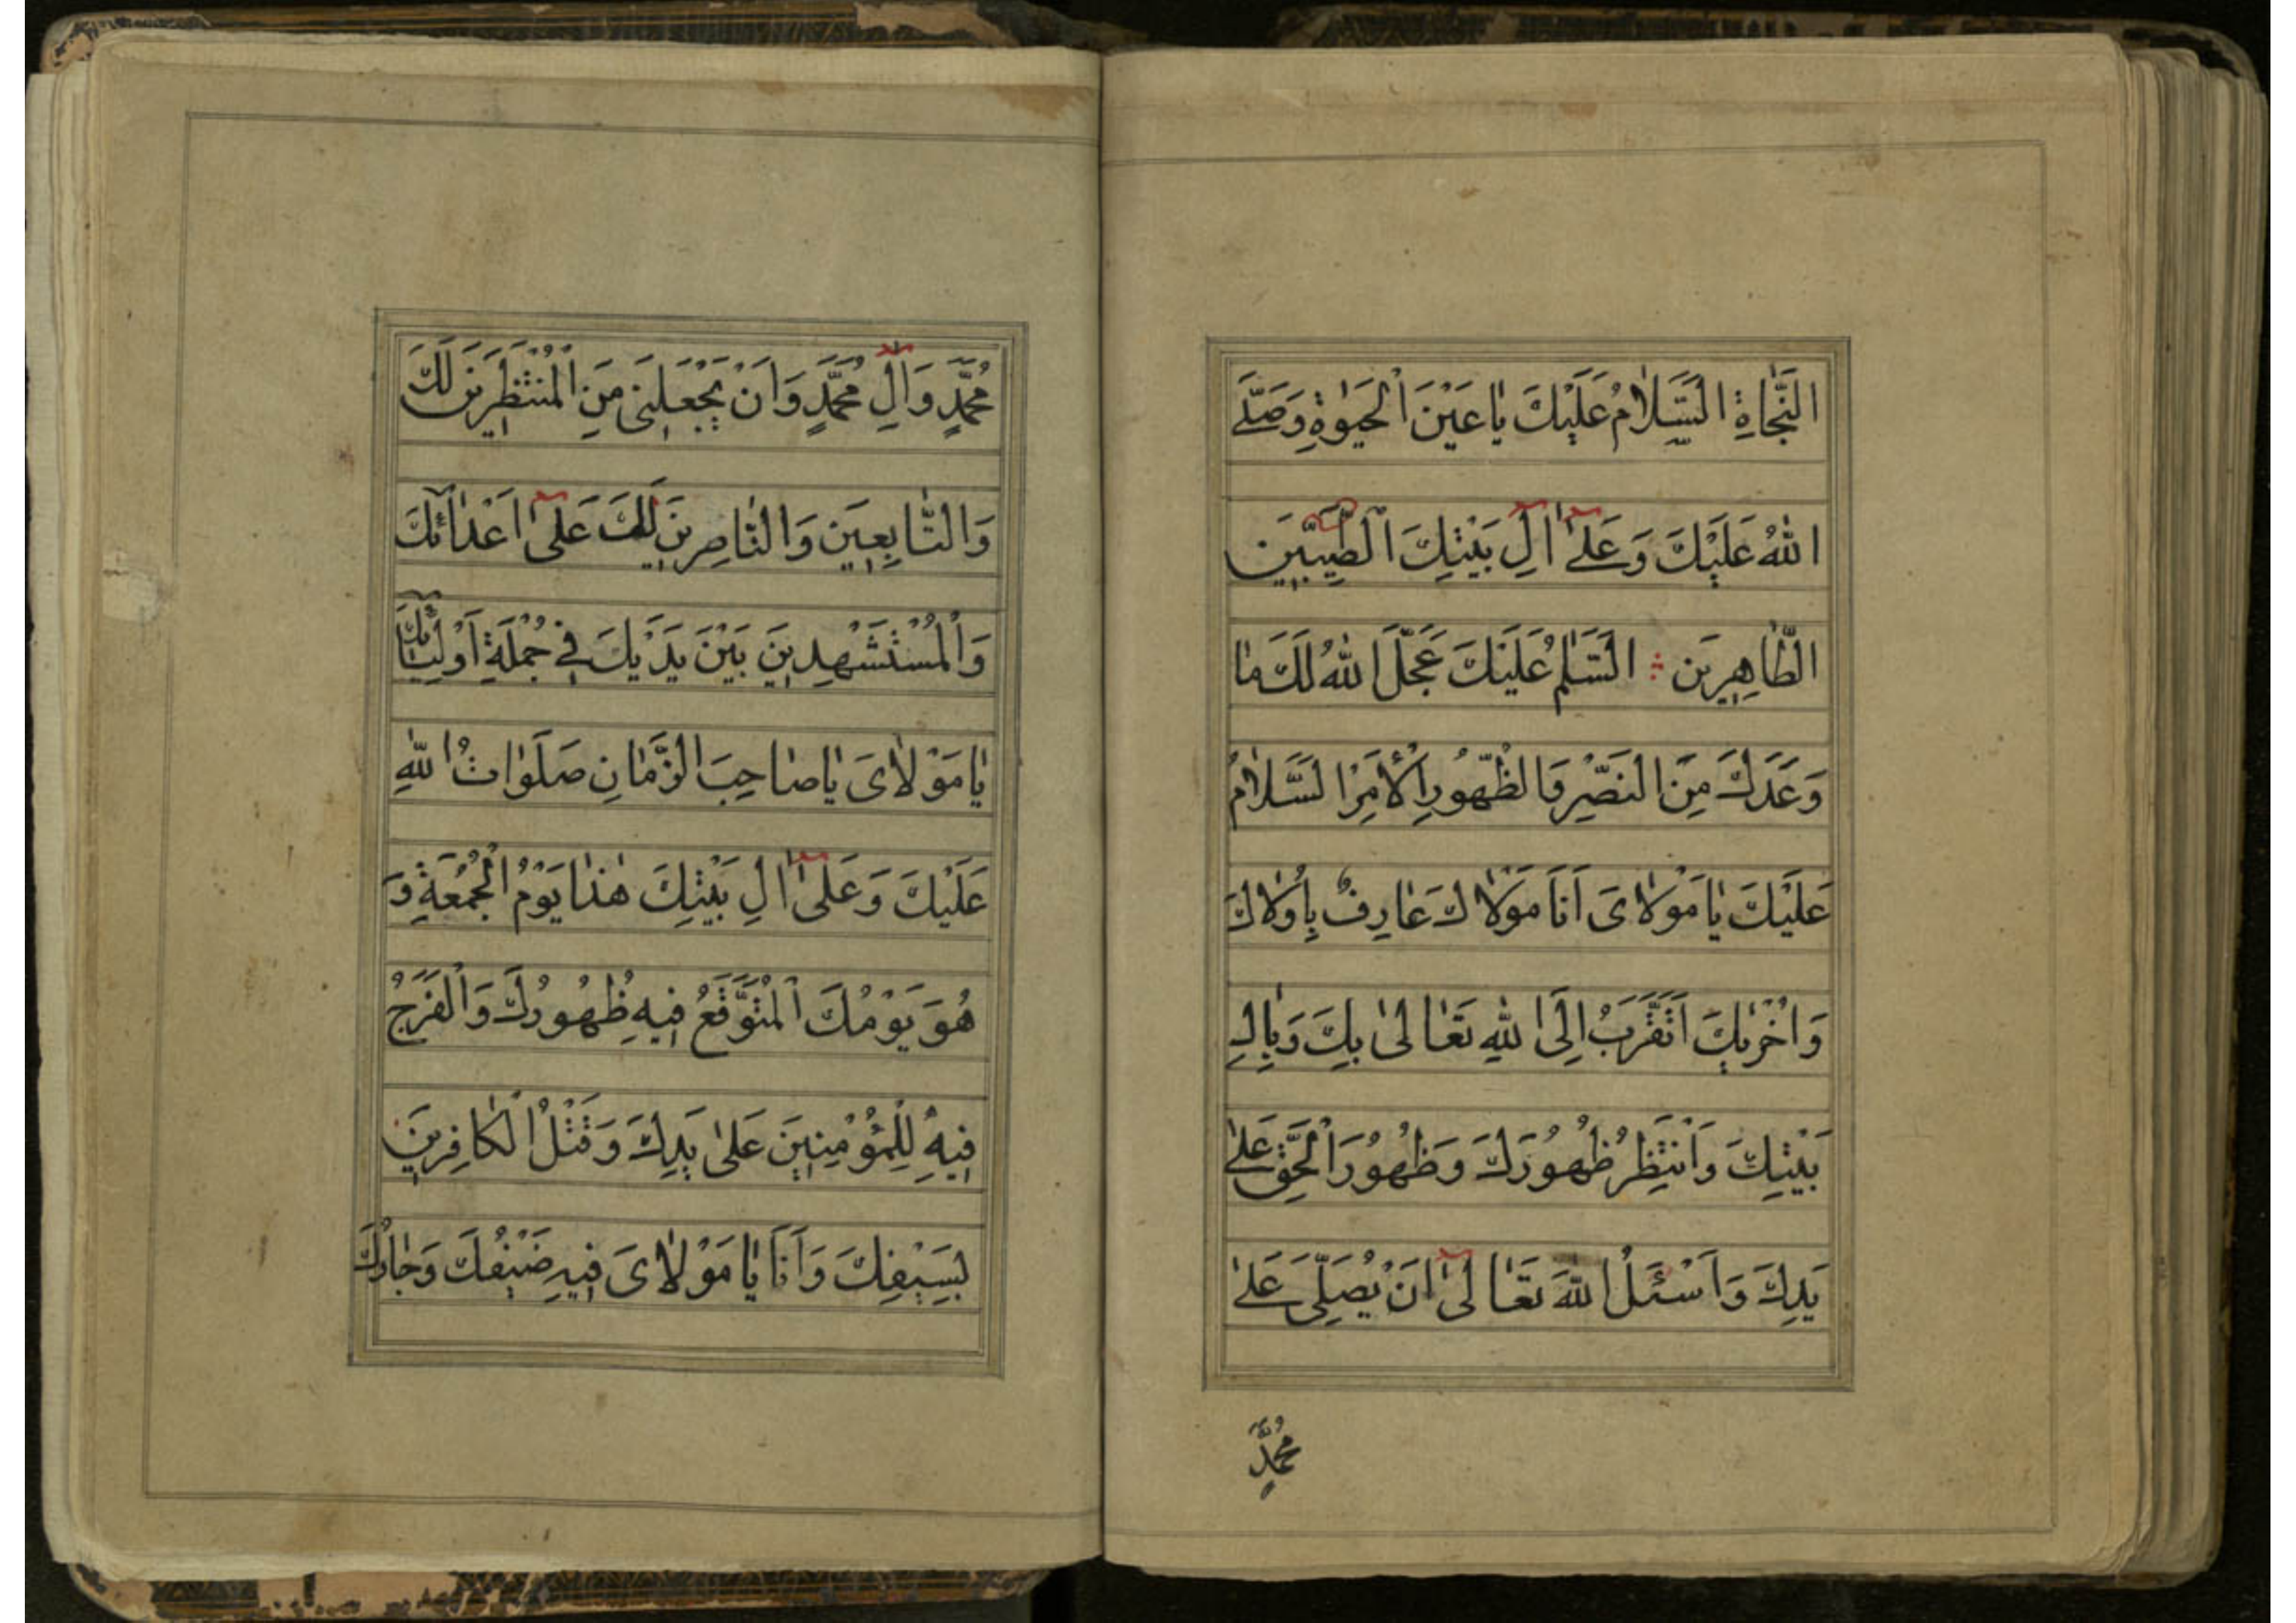 النَّجَاةِ السَّلَامُ عَلَيْكَ يَا عَيْنَ الْحَيٰوةِ وَصَلَّى
اللهُ عَلَيْكَ وَعَلَىٰ آلِ بَيْتِكَ الطَّيِّبِينَ
الطَّاهِرِينَ ؞ السَّلٰمُ عَلَيْكَ عَجَّلَ اللهُ لَكَ مَا
وَعَدَكَ مِنَ النَّصْرِ وَالظُّهُورِ الْأَمْرِ السَّلَامُ
عَلَيْكَ يَا مَوْلَایَ اَنَا مَوْلَاكَ عَارِفٌ بِاُولَاكَ
وَاُخْرٰیكَ اَتَقَرَّبُ اِلَى اللهِ تَعَالىٰ بِكَ وَبِالِ
بَيْتِكَ وَاَنْتَظِرُ ظُهُورَكَ وَظُهُورَ الْحَقِّ عَلىٰ
يَدِكَ وَاَسْئَلُ اللهَ تَعَالىٰٓ اَنْ يُصَلِّىَ عَلىٰ
مُحَمَّدٍ
مُحَمَّدٍ وَآلِ مُحَمَّدٍ وَاَنْ يَجْعَلَنِى مِنَ الْمُنْتَظِرِينَ لَكَ
وَالتَّابِعِينَ وَالنَّاصِرِينَ لَكَ عَلىٰٓ اَعْدَآئِكَ
وَالْمُسْتَشْهَدِينَ بَيْنَ يَدَيْكَ فِى جُمْلَةِ اَوْلِيَآئِكَ
يَا مَوْلَاىَ يَا صَاحِبَ الزَّمَانِ صَلَوَاتُ اللهِ
عَلَيْكَ وَعَلىٰٓ الِ بَيْتِكَ هٰذَا يَوْمُ الْجُمُعَةِ وَ
هُوَ يَوْمُكَ الْمُتَوَقَّعُ فِيهِ ظُهُورُكَ وَالْفَرَجُ
فِيهِ لِلْمُؤْمِنِينَ عَلىٰ يَدِكَ وَقَتْلُ الْكَافِرِينَ
بِسَيْفِكَ وَاَنَا يَا مَوْلَاىَ فِيهِ ضَيْفُكَ وَجَارُكَ